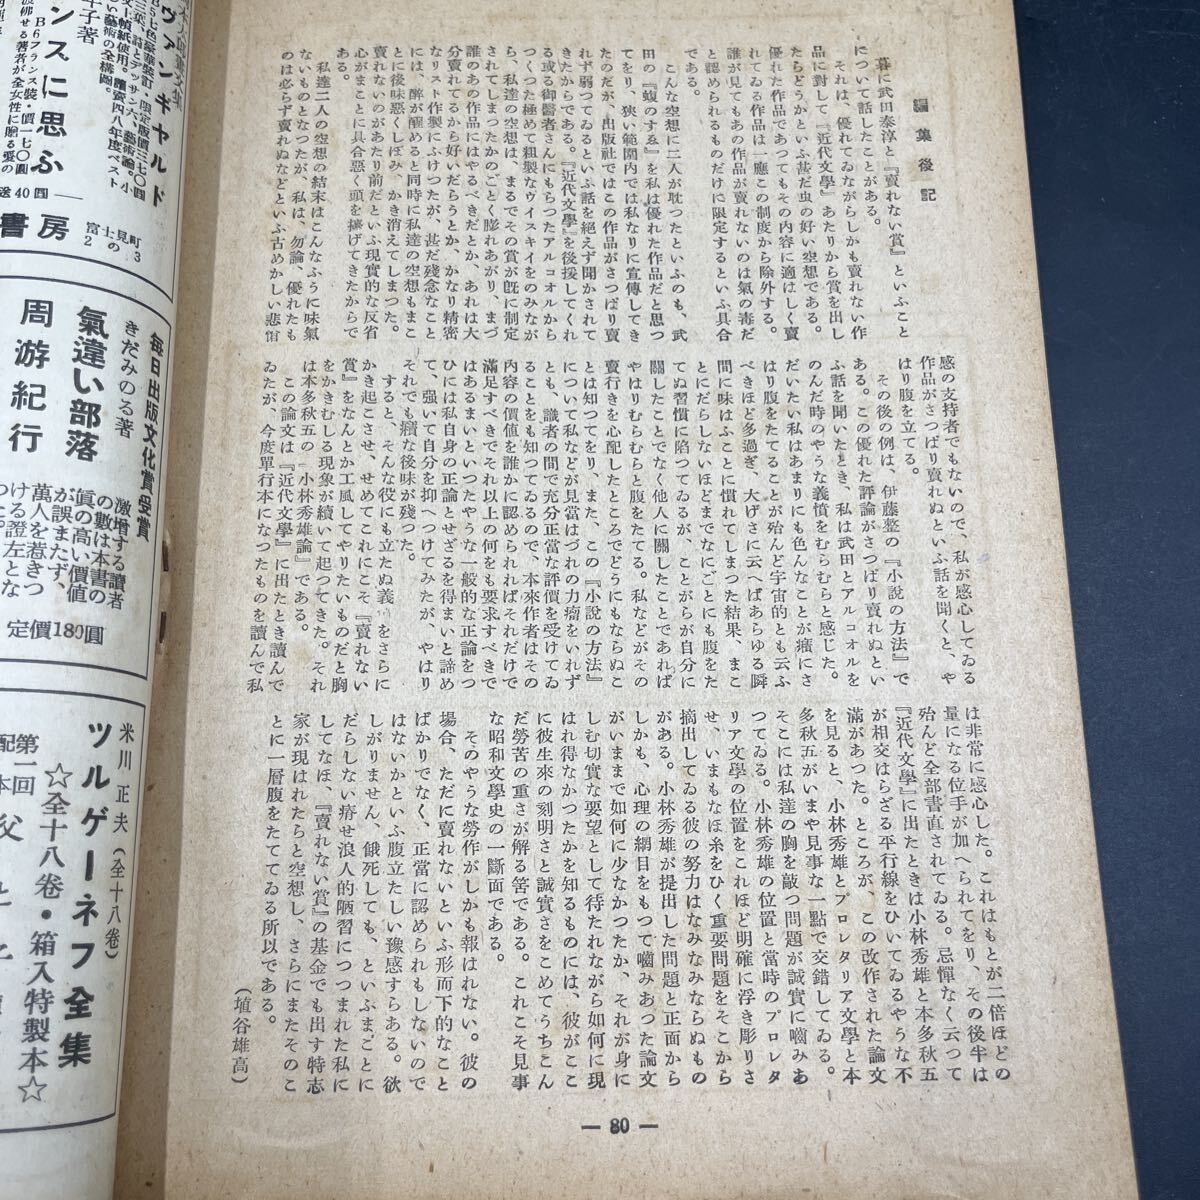 編集後記
暮に武田泰淳と『賣れない賞』といふこと
について話したことがある。
それは、優れてゐながらしかも賣れない作
品に對して『近代文學』あたりから賞を出し
たらどうかといふ甚だ虫の好い空想である。
優れた作品であつてもその内容に適はしく賣
れてゐる作品は一應この制度から除外する。
誰が見てもあの作品が賣れないのは氣の毒だ
と認められるものだけに限定するといふ具合
である。
こんな空想に二人が耽つたといふのも、武
田の『蝮のすゑ』を私は優れた作品だと思つ
てをり、狹い範圍内では私なりに宣傳してき
たのだが、出版社ではこの作品がさつぱり賣
れず弱つてゐるといふ話を絶えず聞かされて
きたからである。『近代文學』を後援してくれ
る或る御醫者さんにもらつたアルコオルから
つくつた極めて粗製なウイスキイをのみなが
ら、私達の空想は、まるでその賞が既に制定
されてしまつたかのごとく膨れあがり、まづ
誰のあの作品にはやるべきだとか、あれは大
分賣れてるから好いだらうとか、かなり精密
なリスト作製にふけつたが、甚だ殘念なこと
には、醉が醒めると同時に私達の空想もまこ
とに後味惡くしぼみ、かき消えてしまつた。
賣れないのがあたり前だといふ現實的な反省
心がまことに具合惡く頭を擡げてきたからで
ある。
私達二人の空想の結末はこんなふうに味氣
ないものとなつたが、私は、勿論、優れたも
のは必らず賣れぬなどといふ古めかしい悲愴
感の支持者でもないので、私が感心してゐる
作品がさつぱり賣れぬといふ話を聞くと、や
はり腹を立てる。
その後の例は、伊藤整の『小說の方法』で
ある。この優れた評論がさつぱり賣れぬとい
ふ話を聞いたとき、私は武田とアルコオルを
のんだ時のやうな義憤をむらむらと感じた。
だいたい私はあまりにも色んなことが癪にさ
はり腹をたてることが殆んど宇宙的とも云ふ
べきほど多過ぎ、大げさに云へばあらゆる瞬
間に味はふことに慣れてしまつた結果、まこ
とにだらしないほどまでなにごとにも腹をた
てぬ習慣に陷つてゐるが、ことがらが自分に
關したことでなく他人に關したことであれば
やはりむらむらと腹をたてる。私などがその
賣行きを心配したところでどうにもならぬこ
とは知つてをり、また、この『小說の方法』
について私などが見當はづれの力瘤をいれず
とも、識者の間で充分正當な評價を受けてゐ
ることをも知つてゐるので、本來作者はその
内容の價値を誰かに認められればそれだけで
滿足すべきでそれ以上の何をも要求すべきで
はあるまいといつたやうな一般的な正論をつ
ひには私自身の正論とせざるを得まいと諦め
て、强いて自分を抑へつけてみたが、やはり
それでも癪な後味が殘つた。
すると、そんな役にも立たぬ義憤をさらに
かき起こさせ、せめてこれにこそ『賣れない
賞』をなんとか工風してやりたいものだと胸
をかきむしる現象が續いて起つてきた。それ
は本多秋五の『小林秀雄論』である。
この論文は『近代文學』に出たとき讀んで
ゐたが、今度單行本になつたものを讀んで私
は非常に感心した。これはもとが二倍ほどの
量になる位手が加へられてをり、その後半は
殆んど全部書直されてゐる。忌憚なく云つて
『近代文學』に出たときは小林秀雄と本多秋五
が相交はらざる平行線をひいてゐるやうな不
滿があつた。ところが、この改作された論文
を見ると、小林秀雄とプロレタリア文學と本
多秋五がいまや見事な一點で交錯してゐる。
そこには私達の胸を敲つ問題が誠實に嚙みあ
つてゐる。小林秀雄の位置と當時のプロレタ
リア文學の位置をこれほど明確に浮き彫りさ
せ、いまもなほ糸をひく重要問題をそこから
摘出してゐる彼の努力はなみなみならぬもの
がある。小林秀雄が提出した問題と正面から
しかも、心理の綱目をもつて嚙みあつた論文
がいままで如何に少なかつたか、それが身に
しむ切實な要望として待たれながら如何に現
はれ得なかつたかを知るものには、彼がここ
に彼生來の刻明さと誠實さをこめてうちこん
だ勞苦の重さが解る筈である。これこそ見事
な昭和文學史の一斷面である。
そのやうな勞作がしかも報はれない。彼の
場合、ただに賣れないといふ形而下的なこと
ばかりでなく、正當に認められもしないので
はないかといふ腹立たしい豫感すらある。欲
しがりません、餓死しても、といふまことに
だらしない瘠せ浪人的陋習につつまれた私に
してなほ、『賣れない賞』の基金でも出す特志
家が現はれたらと空想し、さらにまたそのこ
とに一層腹をたててゐる所以である。
(埴谷雄高)
— 80 —
ヴァンギャルド
ンスに思ふ
B6フランス裝・價一七〇圓
波佛せる著者が全女性に贈る愛の
送40圓
書房
富士見町2の3
每日出版文化賞受賞
きだみのる著
氣違い部落
周游紀行
激增する讀者
の數は本書の
眞の高い價値
が誤またず、
萬人を惹きつ
ける證左とな
つた。
定價180圓
米川正夫(全十八卷)
ツルゲーネフ全集
☆全十八卷・箱入特製本☆
第一回
配本
父